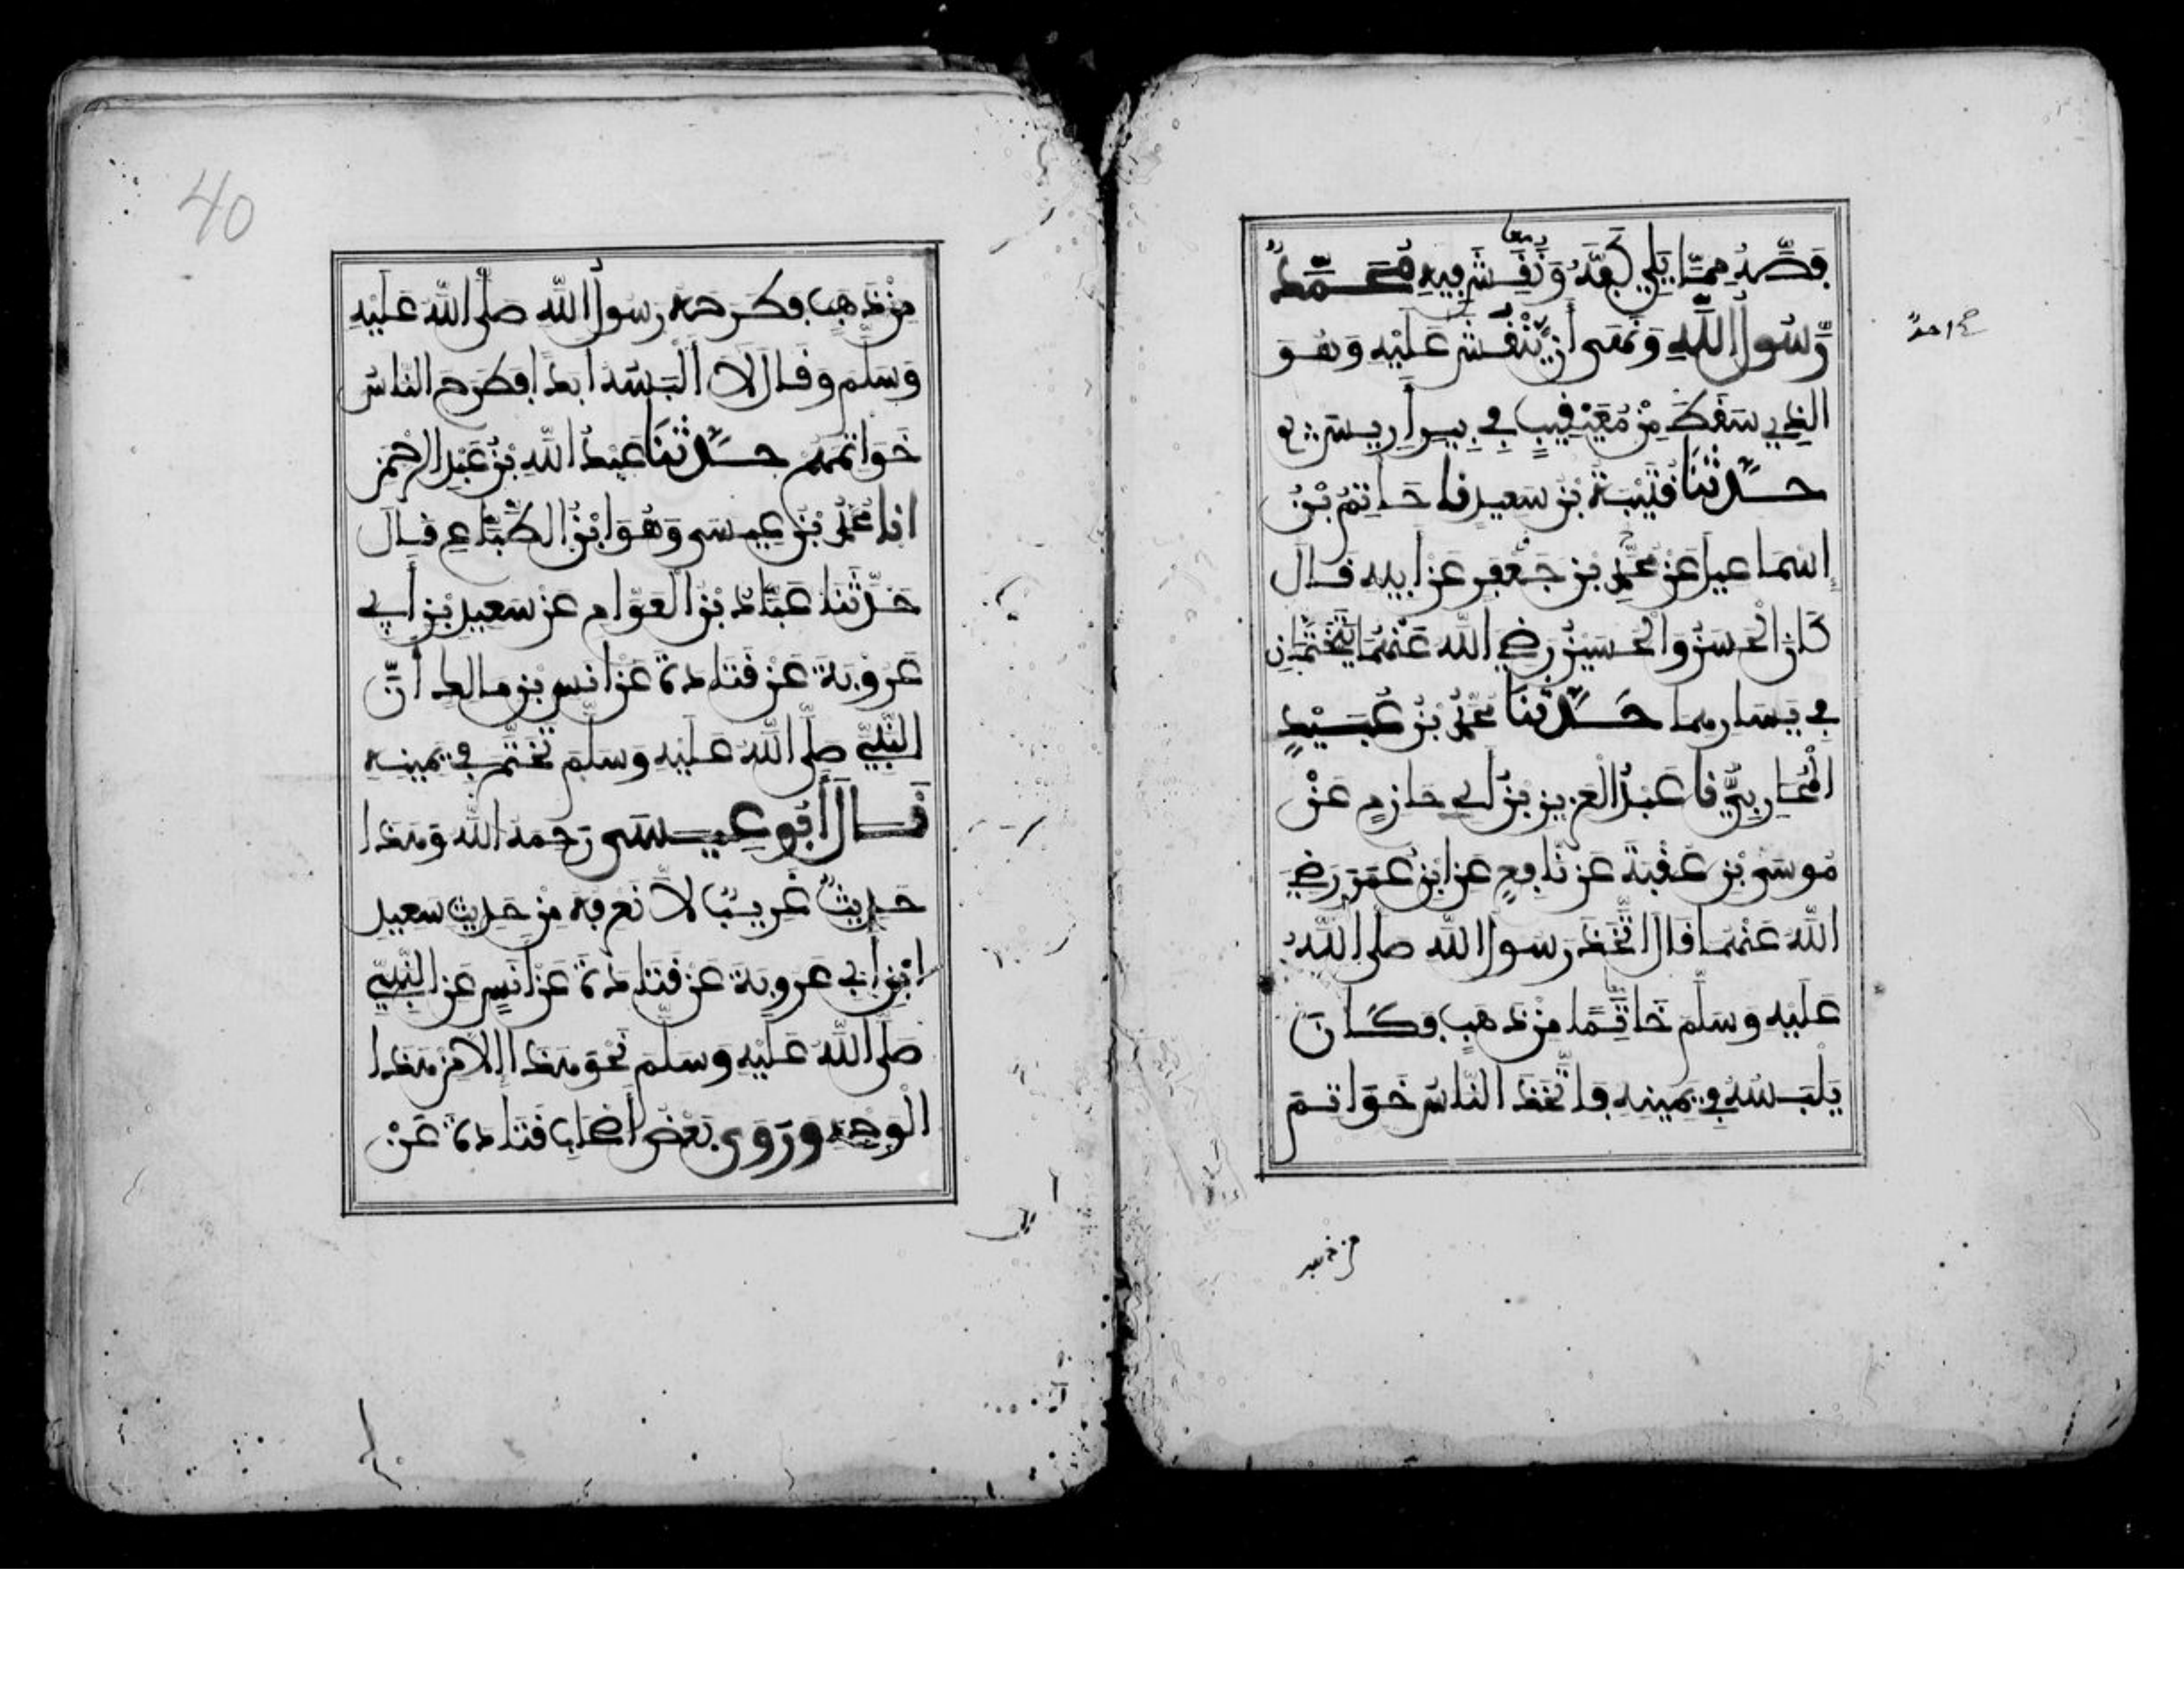 فَصَّهُ مِمَّا يَلِي كَفَّهُ وَنُقِشَ فِيهِ مُحَمَّدٌ
معا
رَّسُولُ اللَّهِ وَنَهَى أَن يَّنْقُشَ عَلَيْهِ وَهُوَ
احد
الذِي سَقَطَ مِنْ مُعَيْقِيبٍ فِي بِيرِ أَرِيسَ
حَدَّثَنَا قُتَيْبَةُ بْنُ سَعِيدٍ نا حَاتِمُ بْنُ
إِسْمَاعِيلَ عَنْ مُحَمَّدِ بْنِ جَعْفَرٍ عَنْ أَبِيهِ قَالَ
كَانَ الْحَسَنُ وَالْحُسَيْنُ رَضِيَ اللَّهُ عَنْهُمَا يَتَخَتَّمَانِ
فِي يَسَارِهِمَا حَدَّثَنَا مُحَمَّدُ بْنُ عُبَيْدٍ
الْمُحَارِبِيُّ نَا عَبْدُ الْعَزِيزِ بْنُ أَبِي حَازِمٍ عَنْ
مُوسَى بْنِ عُقْبَةَ عَنْ نَافِعٍ عَنِ ابْنِ عُمَرَ رَضِيَ
اللَّهُ عَنْهُمَا قَالَ اتَّخَذَ رَسُولُ اللَّهِ صَلَّى اللَّهُ
عَلَيْهِ وَسَلَّمَ خَاتِمًا مِنْ ذَهَبٍ وَكَانَ
يَلْبَسُهُ فِي يَمِينِهِ فَاتَّخَذَ النَّاسُ خَوَاتِمَ
من ذهب
40
مِنْ ذَهَبٍ فَطَرَحَهُ رَسُولُ اللَّهِ صَلَّى اللَّهُ عَلَيْهِ
وَسَلَّمَ وَقَالَ لَا أَلْبَسُهُ أَبَدًا فَطَرَحَ النَّاسُ
خَوَاتِمَهُمْ حَدَّثَنَا عَبْدُ اللَّهِ بْنُ عَبْدِ الرَّحْمَنِ
انا مُحَمَّدُ بْنُ عِيسَى وَهُوَ ابْنُ الطَّبَّاعِ قَالَ
حَدَّثَنَا عَبَّادُ بْنُ الْعَوَّامِ عَنْ سَعِيدِ بْنِ أَبِي
عَرُوبَةَ عَنْ قَتَادَةَ عَنْ أَنَسِ بْنِ مَالِكٍ أَنَّ
النَّبِيَّ صَلَّى اللَّهُ عَلَيْهِ وَسَلَّمَ تَخَتَّمَ فِي يَمِينِهِ
قَالَ أَبُو عِيسَى رَحِمَهُ اللَّهُ وَهَذَا
حَدِيثٌ غَرِيبٌ لَا نَعْرِفُهُ مِنْ حَدِيثِ سَعِيدِ
ابْنِ أَبِي عَرُوبَةَ عَنْ قَتَادَةَ عَنْ أَنَسٍ عَنِ النَّبِيِّ
صَلَّى اللَّهُ عَلَيْهِ وَسَلَّمَ نَحْوَ هَذَا إِلَّا مِنْ هَذَا
الْوَجْهِ وَرَوَى بَعْضُ أَصْحَابِ قَتَادَةَ عَنْ